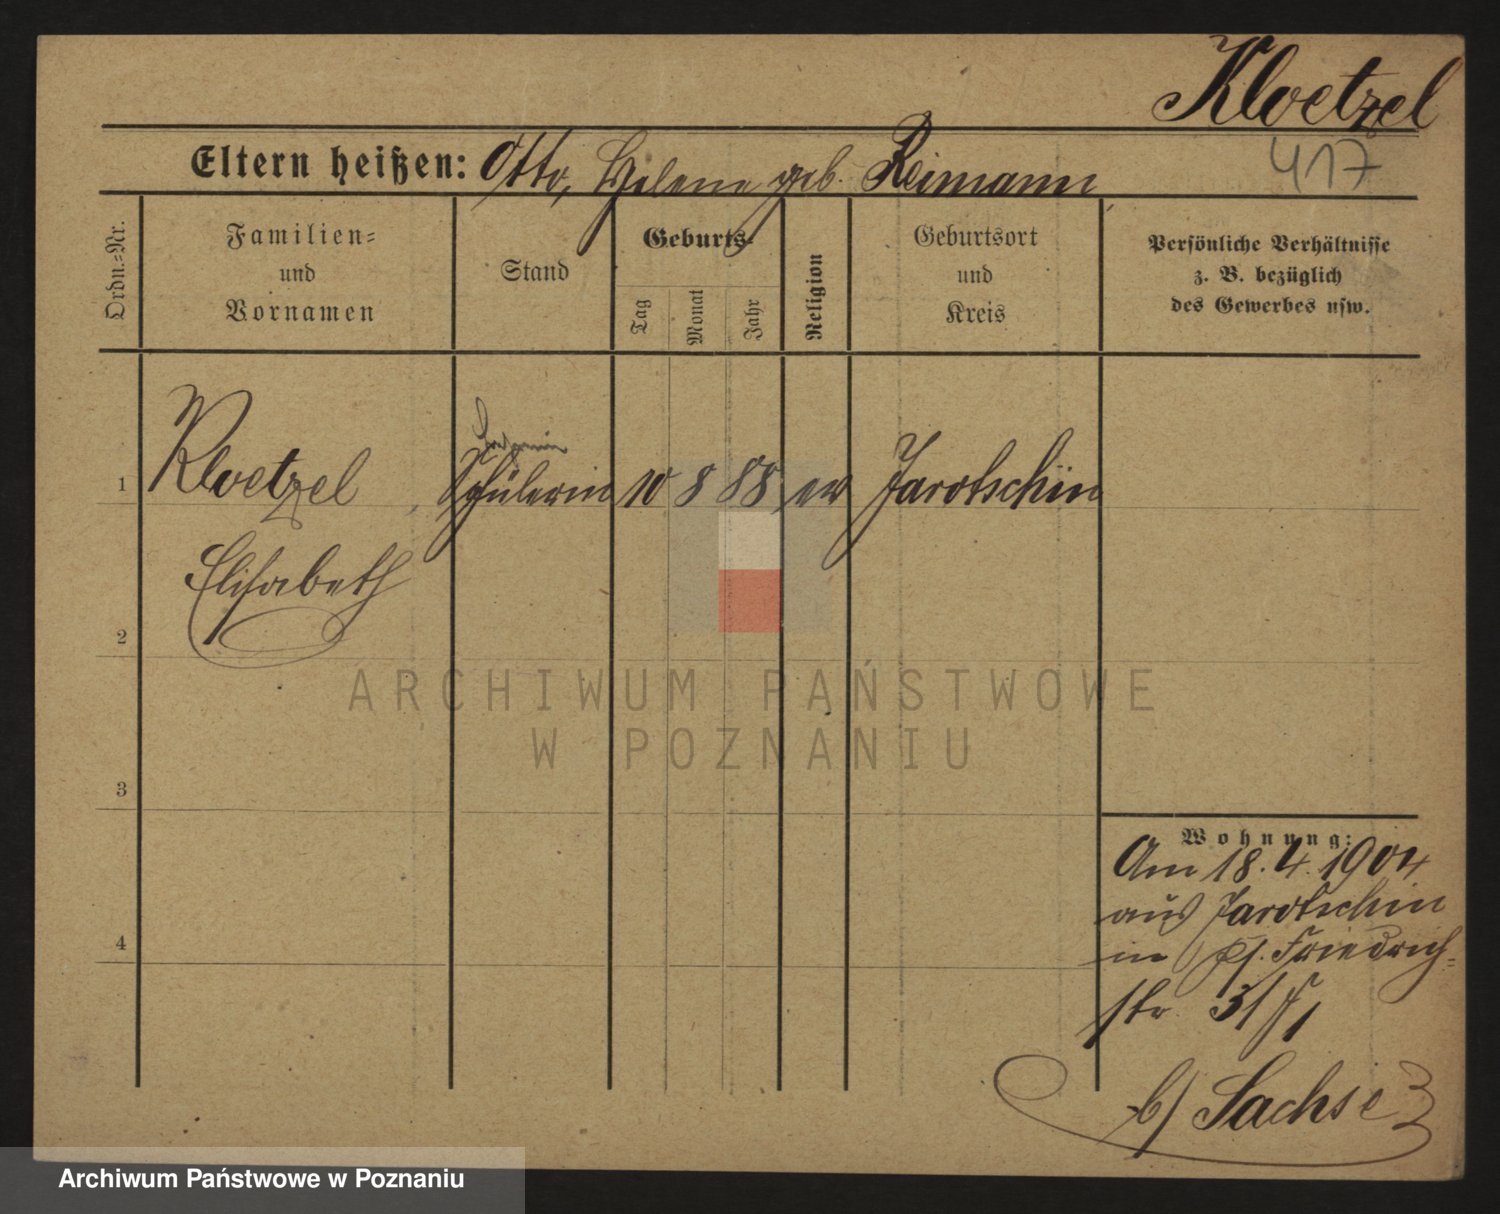 Kloetzel
417
Eltern heißen: Otto, Helene geb. Reimann
Ordn.-Nr.
Familien-
und
Vornamen
Stand
Geburts-
Tag
Monat
Jahr
Religion
Geburtsort
und
Kreis
Persönliche Verhältnisse
z. B. bezüglich
des Gewerbes usw.
1
Kloetzel
Schülerin
10 8 88 ev
Jarotschin
Elisabeth
2
3
4
ARCHIWUM PAŃSTWOWE
W POZNANIU
Wohnung:
Am 18.4.1904
aus Jarotschin
in Friedrich-
str 31
b/ Sachse
Archiwum Państwowe w Poznaniu